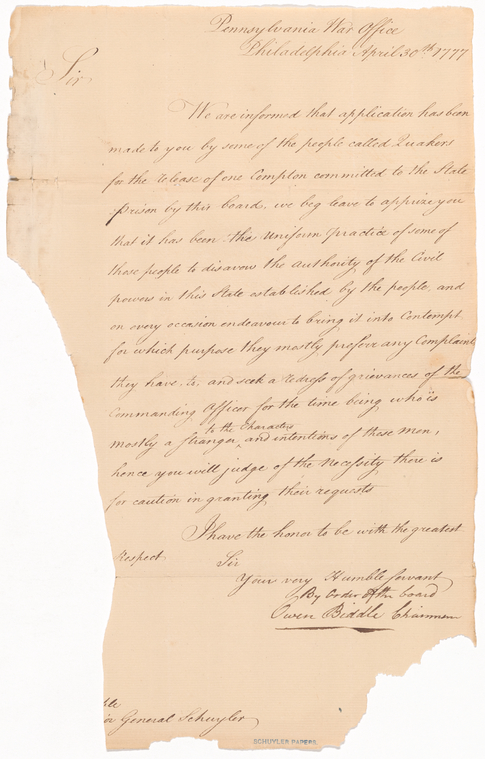 Pennsylvania War Office
Philadelphia April 30th 1777
Sir,
We are informed that application has been
made to you by some of the people called Quakers
for the release of one Compton committed to the State
prison by this board, we beg leave to apprize you
that it has been the uniform practice of some of
those people to disavow the authority of the Civil
powers in this State established by the people, and
on every occasion endeavour to bring it into Contempt
for which purpose they mostly preferr any Complaint
they have to, and seek a redress of grievances of the
Commanding Officer for the time being who is
to the Characters
mostly a stranger, and intentions of those men,
hence you will judge of the Necessity there is
for caution in granting their requests
I have the honor to be with the greatest
respect
Sir
Your very Humble Servant
By Order of the board
Owen Biddle Chairman
ble
or General Schuyler
SCHUYLER PAPERS